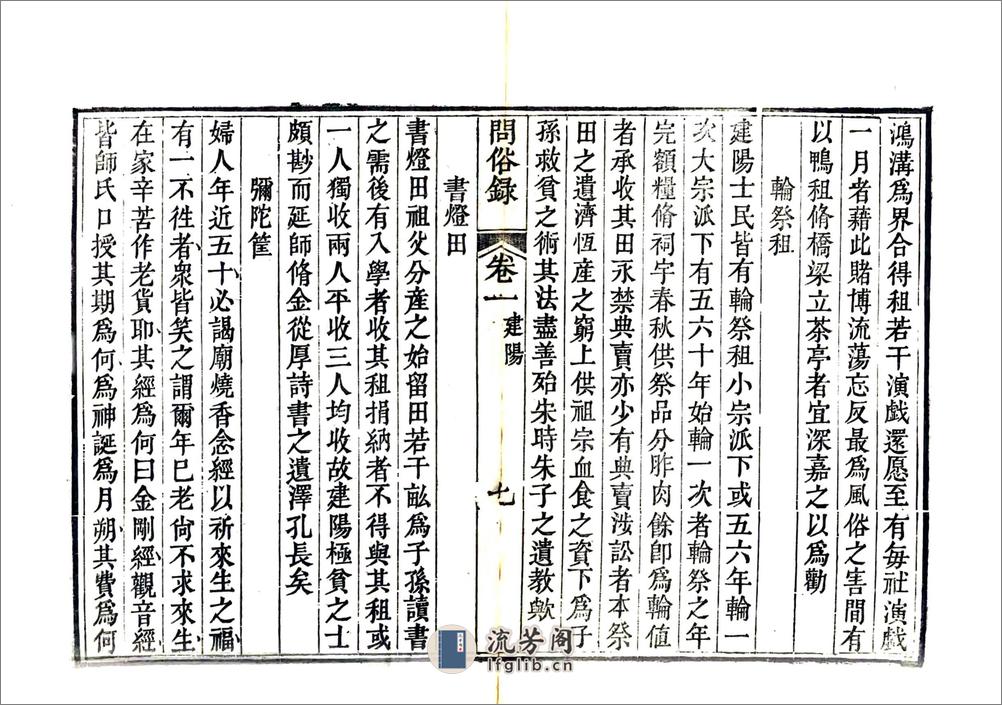 鴻溝爲界合得租若干演戲還愿至有每社演戲
一月者藉此賭博流蕩忘反最爲風俗之害間有
以鴨租脩橋梁立茶亭者宜深嘉之以爲勸
輪祭租
建陽士民皆有輪祭租小宗派下或五六年輪一
次大宗派下有五六十年始輪一次者輪祭之年
完額糧脩祠宇春秋供祭品分胙肉餘卽爲輪值
者承收其田永禁典賣亦少有典賣涉訟者本祭
田之遺濟恆產之窮上供祖宗血食之資下爲子
孫救貧之術其法盡善殆朱時朱子之遺教歟
問俗录 卷一 建陽 七
書燈田
書燈田祖父分產之始留田若干畝爲子孫讀書
之需後有入學者收其租捐納者不得與其租或
一人獨收兩人平收三人均收故建陽極貧之士
頗尠而延師脩金從厚詩書之遺澤孔長矣
彌陀筐
婦人年近五十必謁廟燒香念經以祈來生之福
有一不徃者衆皆笑之謂爾年巳老尙不求來生
在家辛苦作老貨耶其經爲何曰金剛經觀音經
皆師氏口授其期爲何爲神誕爲月朔其費爲何
流芳阁
lfglib.cn